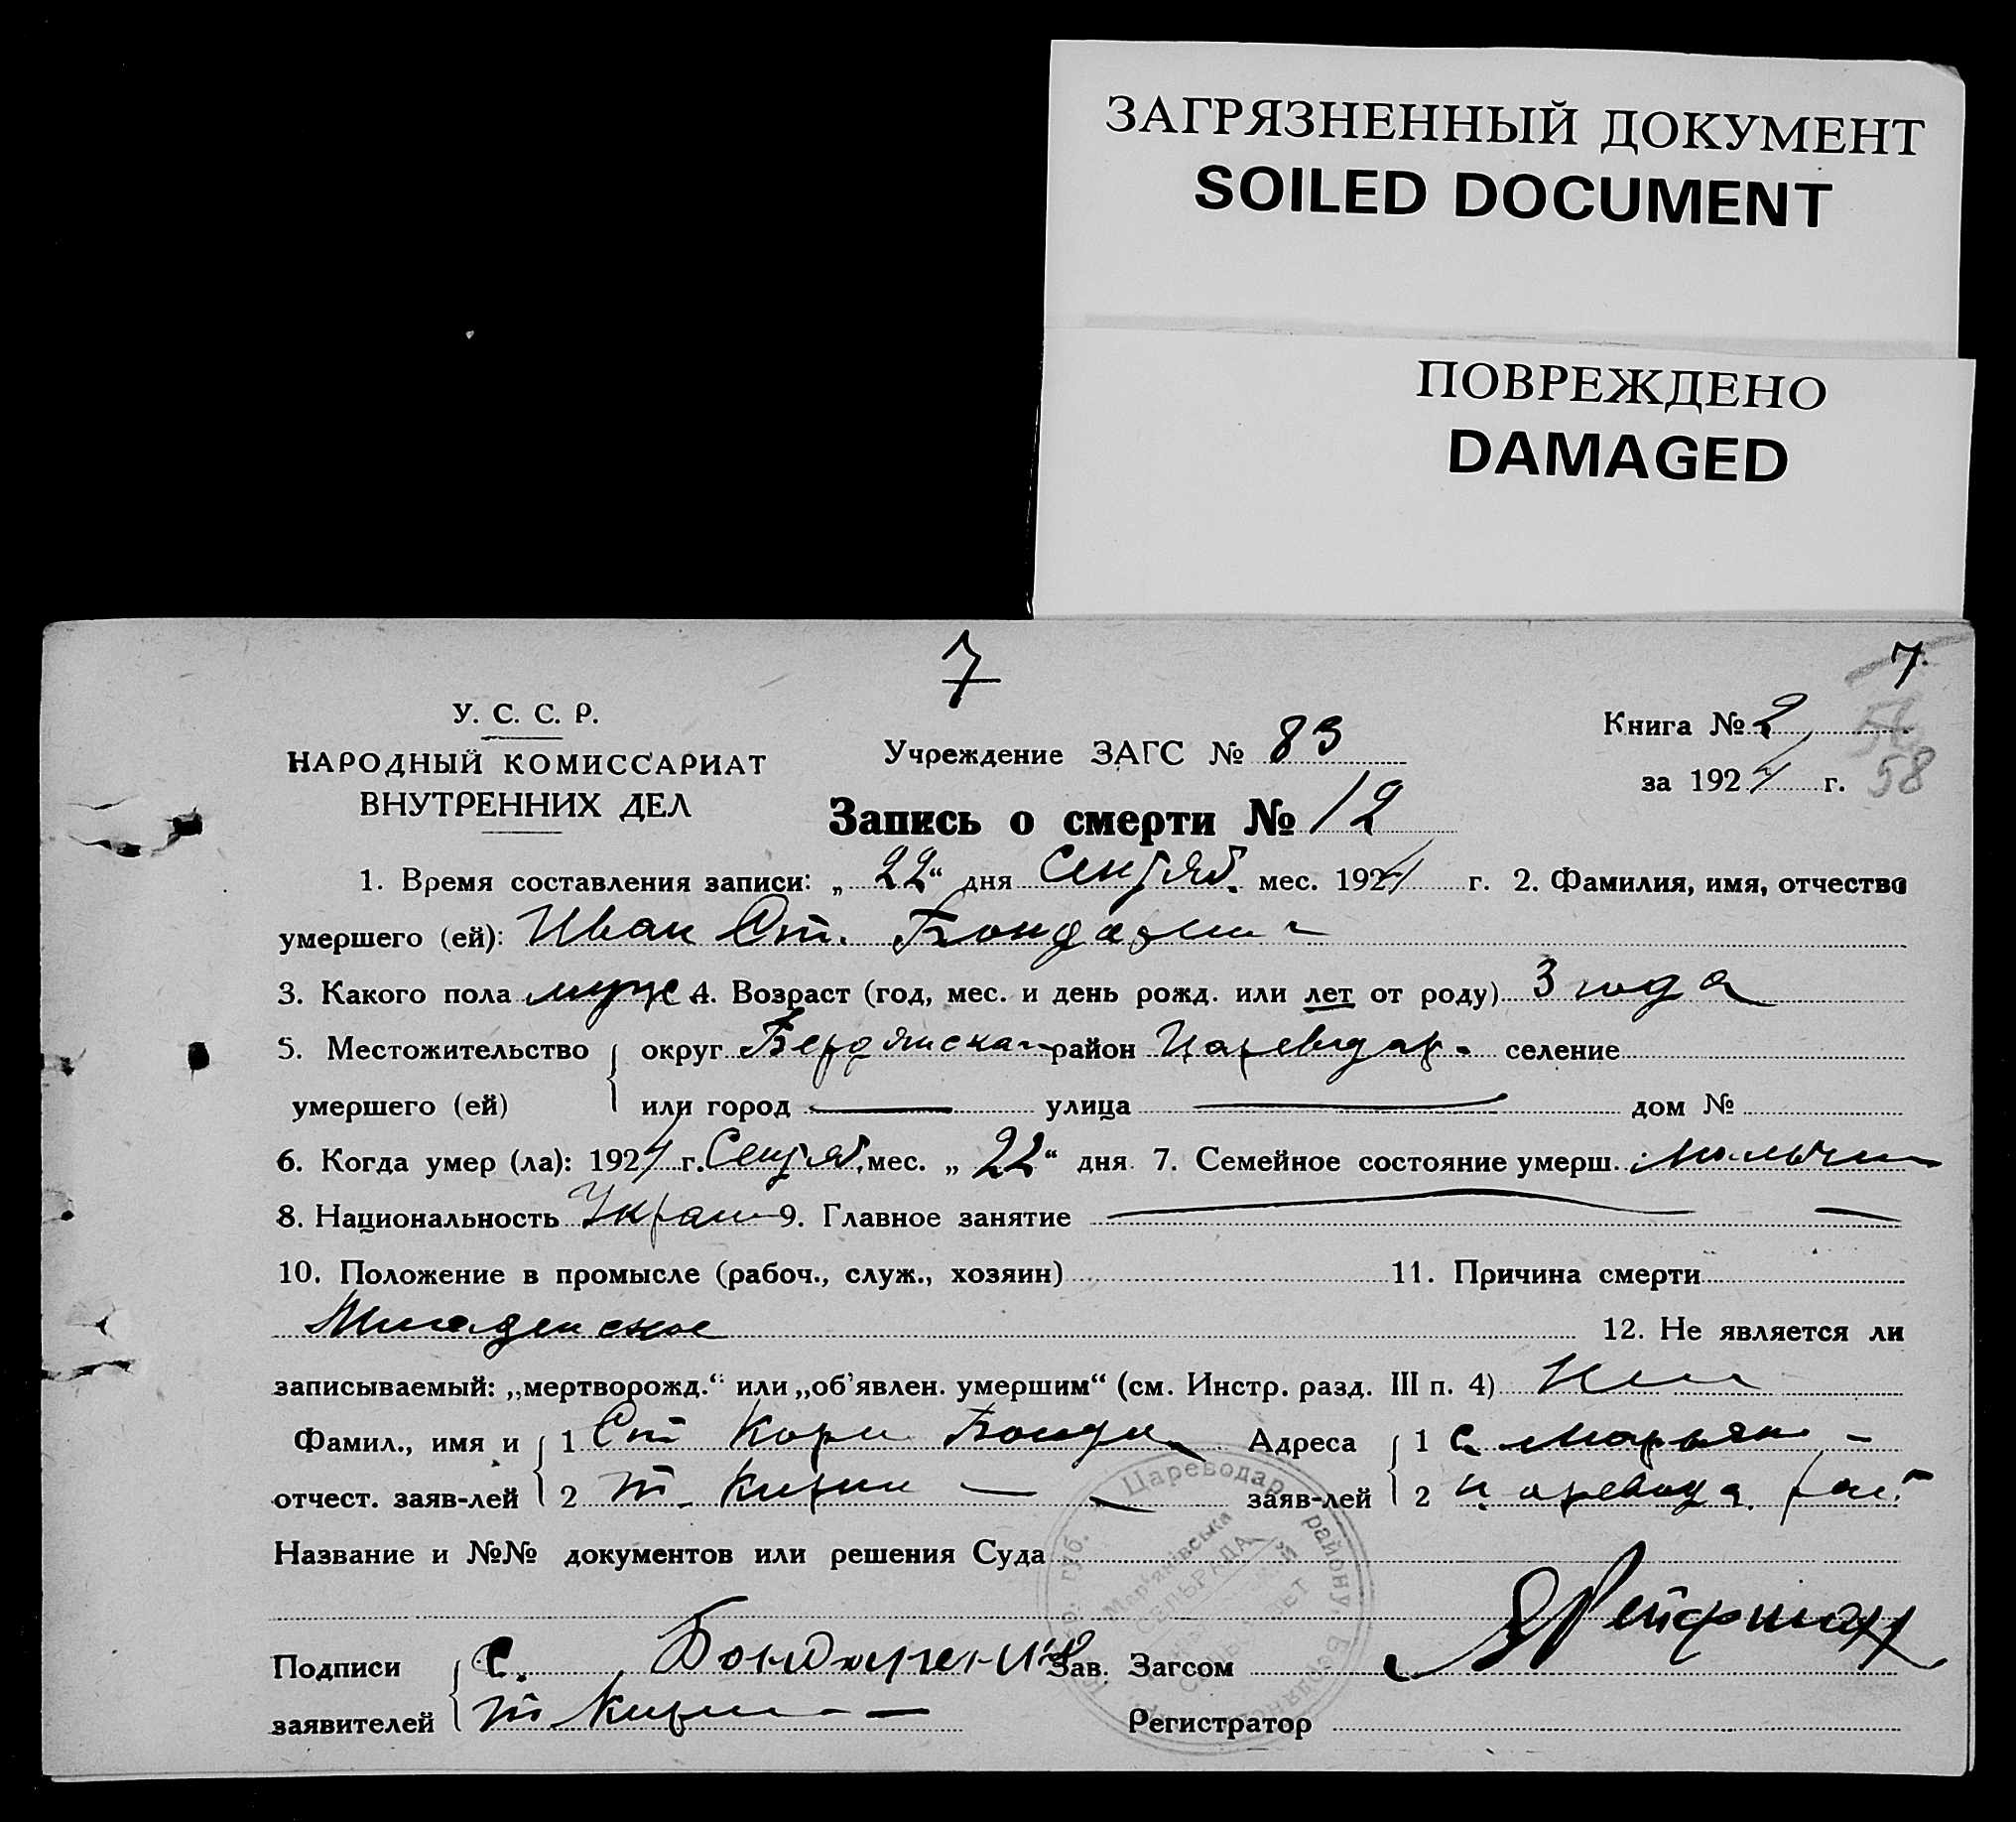 ЗАГРЯЗНЕННЫЙ ДОКУМЕНТ
SOILED DOCUMENT
ПОВРЕЖДЕНО
DAMAGED
7
7.
У. С. С. Р.
НАРОДНЫЙ КОМИССАРИАТ
ВНУТРЕННИХ ДЕЛ
Учреждение ЗАГС № 83
Книга № 2
за 1924 г. 58
Запись о смерти № 12
1. Время составления записи: „22“ дня Сентяб. мес. 1924 г. 2. Фамилия, имя, отчество
умершего (ей): Иван Ст.
3. Какого пола муж 4. Возраст (год, мес. и день рожд. или лет от роду) 3 года
5. Местожительство округ район Цареводар. селение
умершего (ей) или город улица дом №
6. Когда умер (ла): 1924 г. Сентяб. мес. „22“ дня 7. Семейное состояние умерш.
8. Национальность Украин 9. Главное занятие
10. Положение в промысле (рабоч., служ., хозяин) 11. Причина смерти
Младенское 12. Не является ли
записываемый: „мертворожд.“ или „об'явлен. умершим“ (см. Инстр. разд. III п. 4)
Фамил., имя и 1 Ст Адреса 1 с.
отчест. заяв-лей 2 заяв-лей 2
Название и №№ документов или решения Суда
Подписи С. Зав. Загсом
заявителей Регистратор
Цареводар району,
Мар'янівська
СЕЛЬРАДА